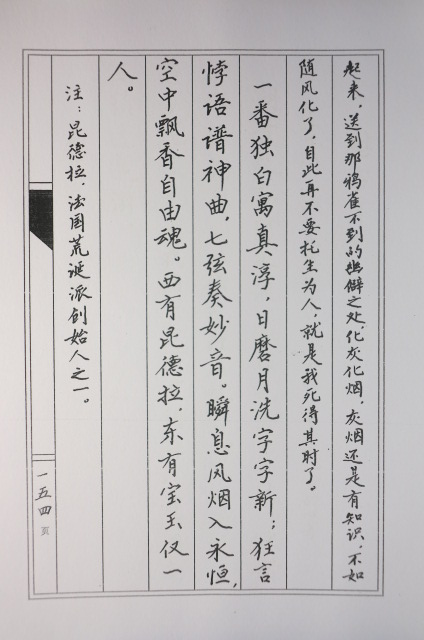 起来，送到那鸦雀不到的幽僻之处，化灰化烟，灰烟还是有知识，不如
随风化了，自此再不要托生为人，就是我死得其时了。
一番独白寓真淳，日磨月洗字字新；狂言
悖语谱神曲，七弦奏妙音。瞬息风烟入永恒，
空中飘香自由魂。西有昆德拉，东有宝玉仅一
人。
注：昆德拉，法国荒诞派创始人之一。
一五四页